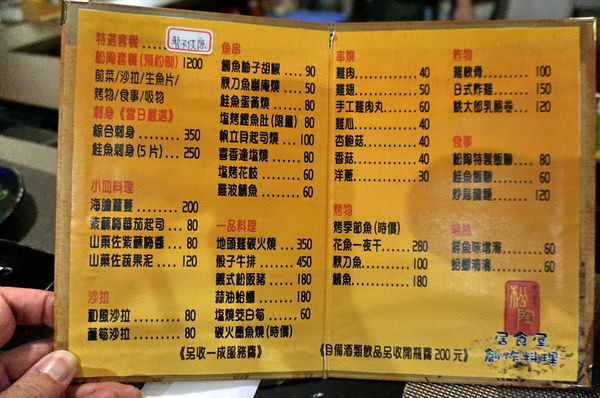 特選套餐......
暫不供應
松陶套餐(預約制) 1200
前菜/沙拉/生魚片/
烤物/食事/吸物
刺身《當日嚴選》
綜合刺身........350
鮭魚刺身(5片)...250
小皿料理
海膽蘿蔓......200
紫蘇梅蕃茄起司...80
山藥佐紫蘇梅醬...80
山藥佐蔬果泥....120
沙拉
和風沙拉........80
蘆筍沙拉........80
《另收一成服務費》
魚串
鯛魚柚子胡椒....90
秋刀魚幽庵燒....50
鮭魚蛋黃燒......80
塩烤鰹魚肚(限量) 80
帆立貝起司燒....100
喜香達塩燒......80
塩烤花枝........60
難波鯖魚........60
一品料理
地頭雞碳火燒...350
骰子牛排.......450
義式松阪豬.....180
蒜油蛤蠣.......180
塩燒茭白筍.....60
碳火墨魚燒(時價)
串燒
雞肉............40
雞翅............50
手工雞肉丸......60
雞心............40
杏鮑菇..........40
香菇............40
洋蔥............30
烤物
烤季節魚(時價)
花魚一夜干....280
秋刀魚........100
鯖魚..........180
《自備酒類飲品另收開瓶費200元》
炸物
雞軟骨........100
日式炸雞......150
桃太郎乳酪卷...120
食事
松陶特製飯糰...80
鮭魚飯糰......60
炒烏龍麵......120
鮮魚味增湯....60
蛤蠣清湯......60
松陶
居食屋
創作料理